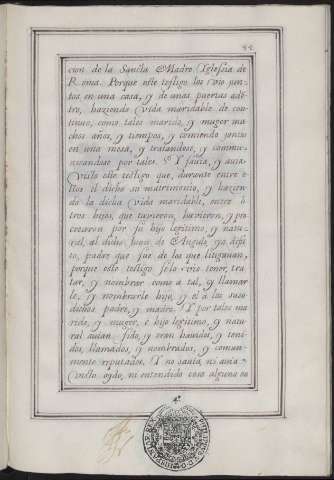 cion de la Sancta Madre Yglessia de
Roma. Porque este testigo los vio jun-
tos en una casa, y de unas puertas adē-
tro, haziendo vida maridable de con-
tinuo, como tales marido, y muger mu-
chos años, y tiempos, y comiendo juntos
en una mesa, y tratandose, y commu-
nicandose por tales. Y sauia, y auia
visto este testigo que, durante entre e-
llos el dicho su matrimonio, y hazien-
do la dicha vida maridable, entre ō
tros hijos, que tuuieron, huuieron, y pro
crearon por su hijo legitimo, y natu-
ral, al dicho Juan de Angulo ya defū
to, padre que fue de los que litigauan,
porque este testigo se lo vino tener, tra-
tar, y nombrar como a tal, y llamar
le, y nombrarle hijo, y el a los suso
dichos padre, y madre. Y por tales ma
rido, y muger, e hijo legitimo, y natu
ral auian sido, y eran hauidos, y teni
dos, llamados, y nombrados, y comun-
mente reputados. Y no sauia, ni auia
visto oydo, ni entendido cosa alguna en